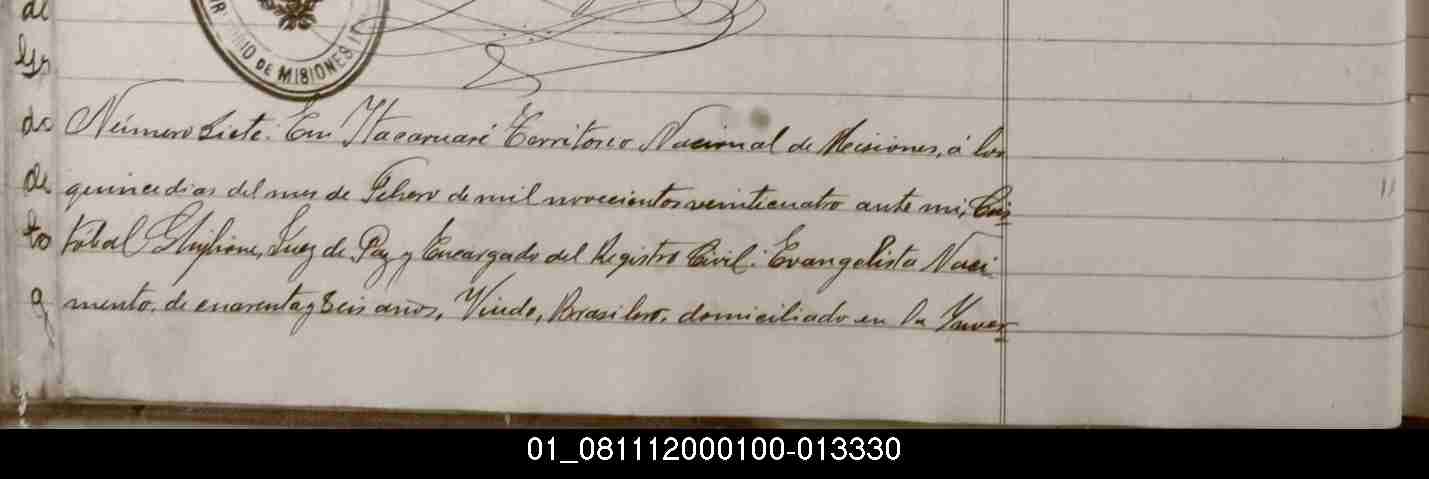 de
DE MISIONES
do Número Siete. En Itacaruaré Territorio Nacional de Misiones, á los
de quince dias del mes de Febrero de mil novecientos veinticuatro ante mi, Cris
to tóbal Juez de Paz y Encargado del Registro Civil: Evangelista Naci
mento, de cuarenta y seis años, Viudo, Brasilero, domiciliado en la
01_081112000100-013330